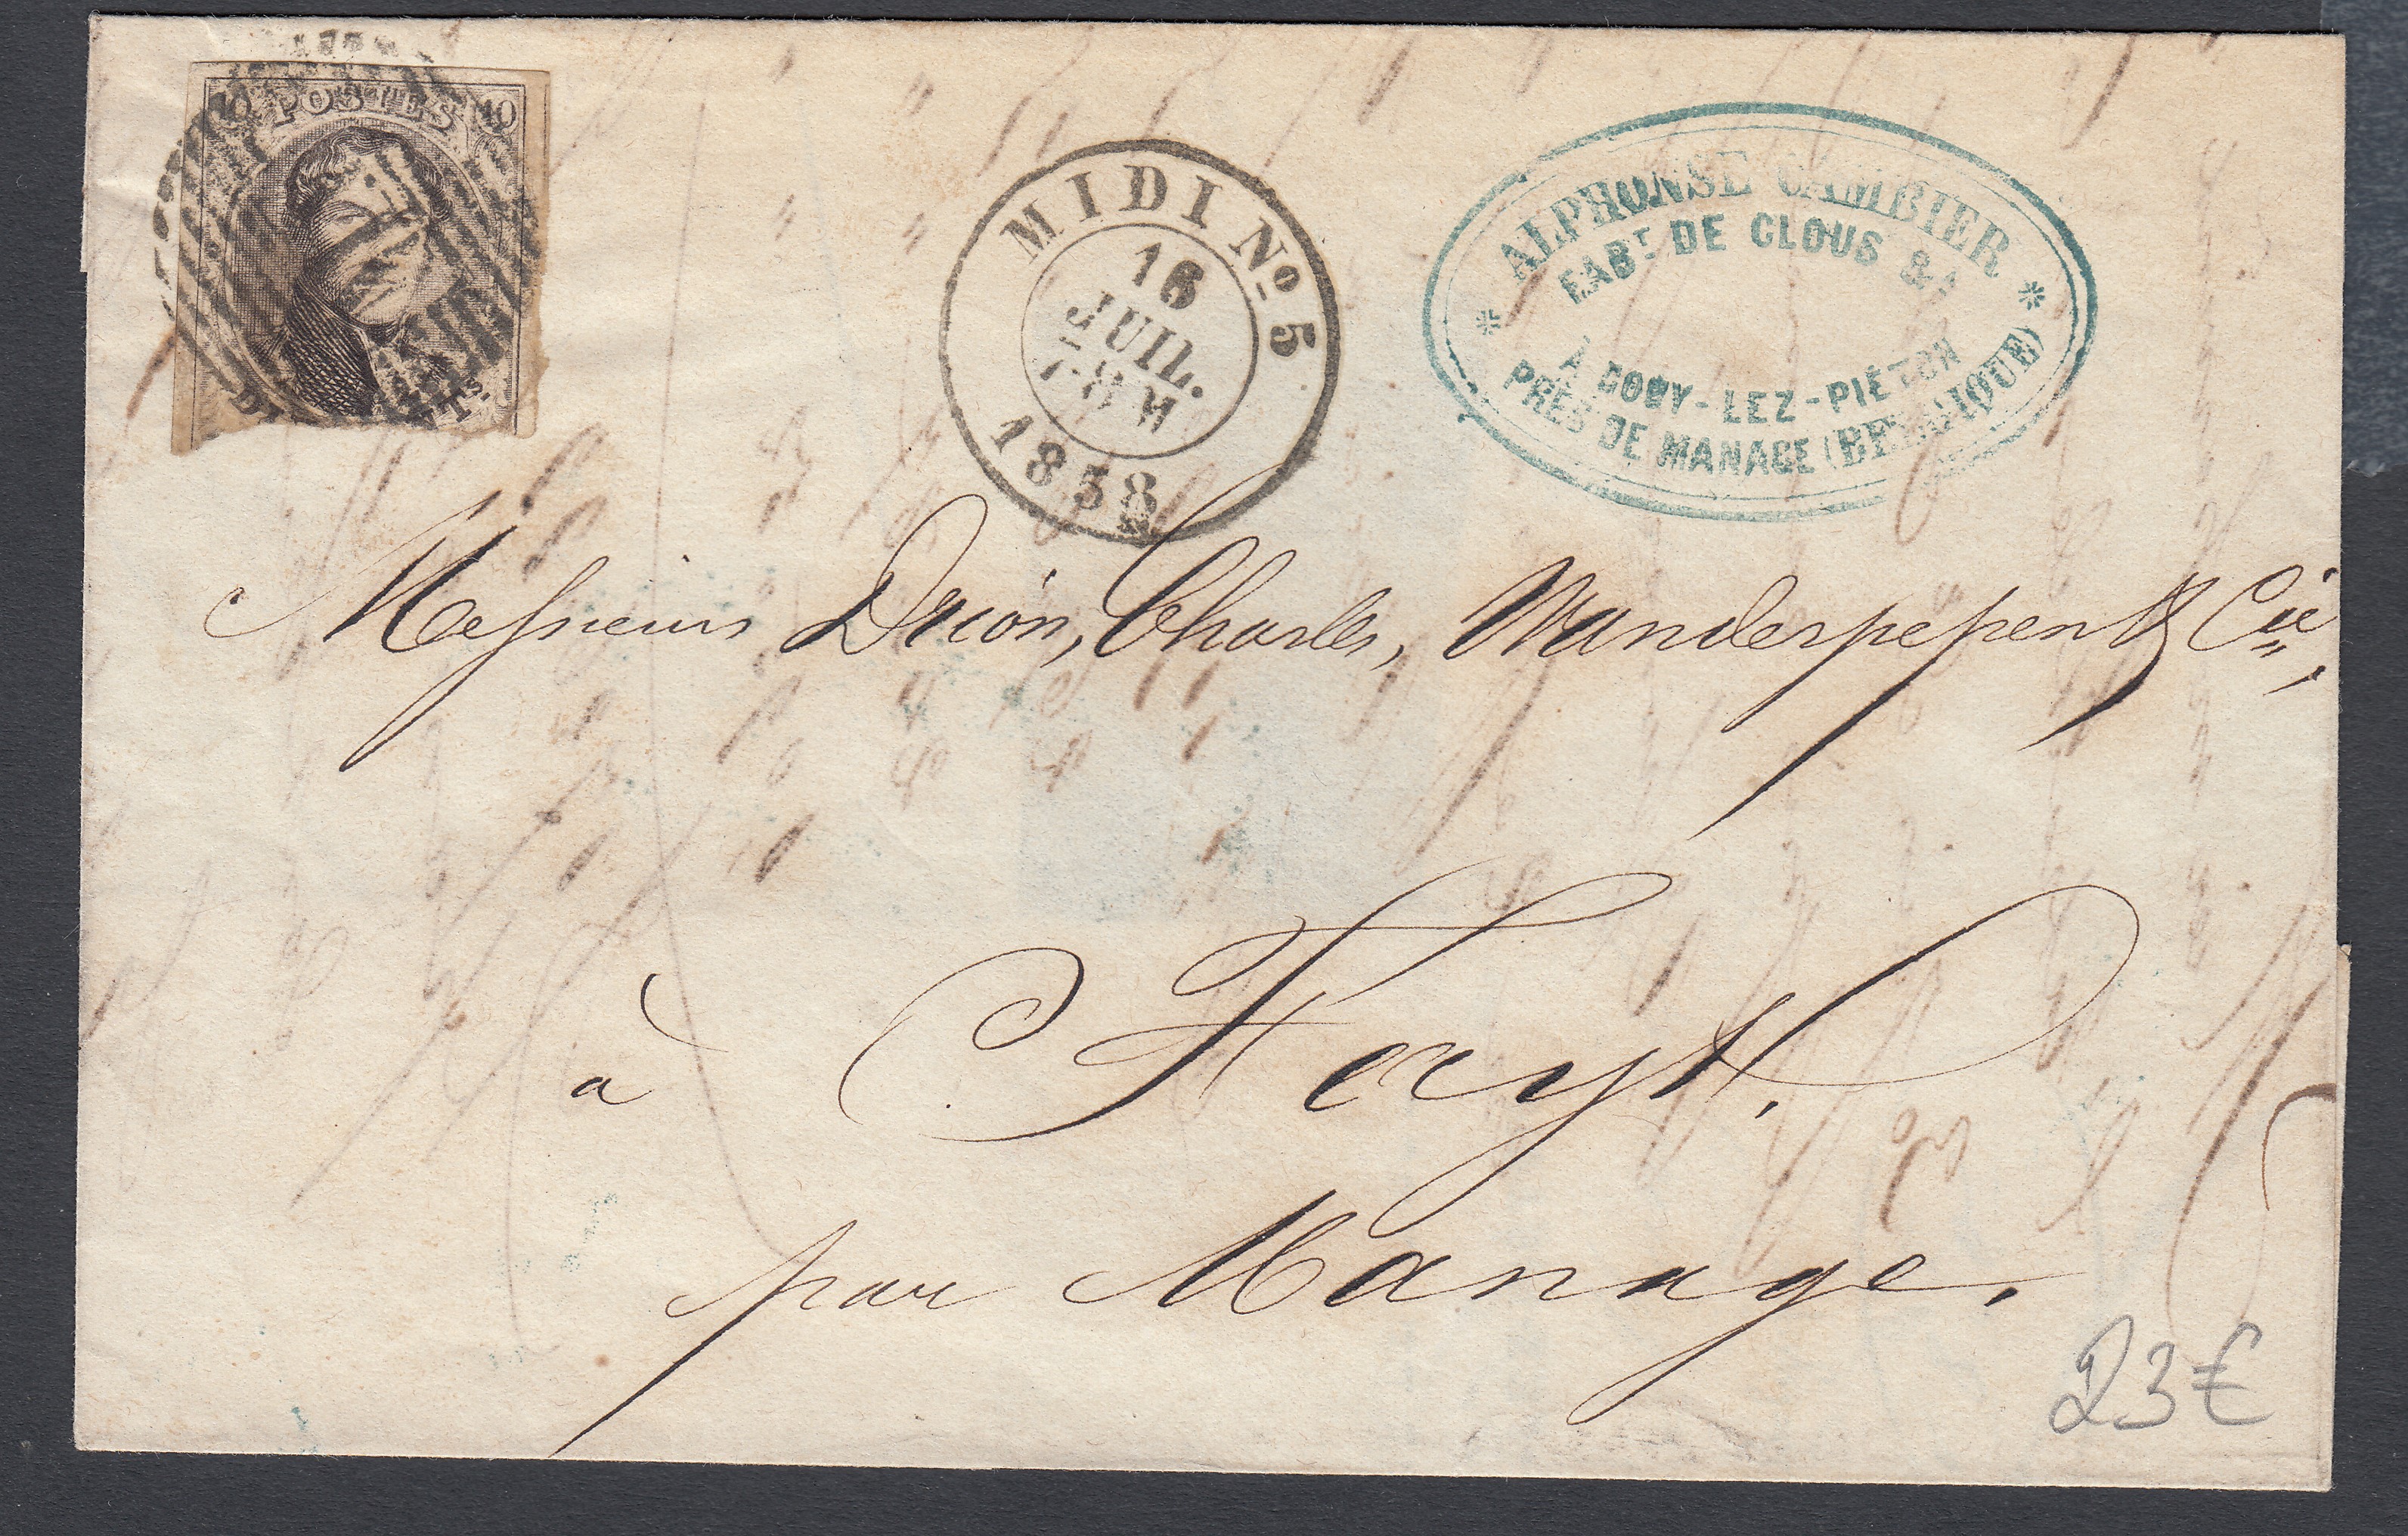 10 POSTES 10
MIDI Nº 5
16
JUIL.
7-8 M
1858
* ALPHONSE CAMBIER *
FABT DE CLOUS &
À GOUY-LEZ-PIÉTON
PRÈS DE MANAGE (BELGIQUE)
Messieurs Drion, Charles, Wanderpepen & Cie,
à Feluy,
par Manage.
23€